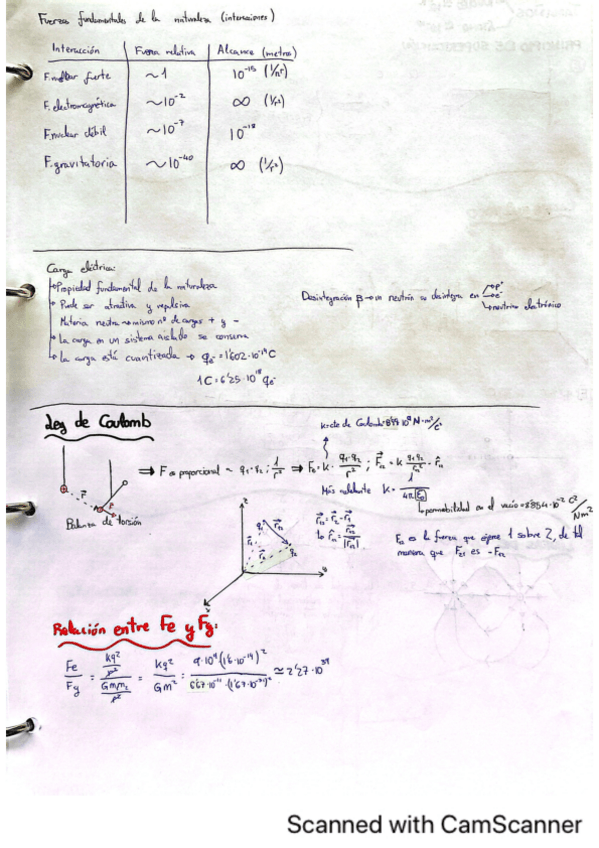 Fuerzas fundamentales de la naturaleza (interacciones)
Interacción Fuerza relativa Alcance (metros)
F. nuclear fuerte ~1 10^-15 (1/r^7)
F. electromagnética ~10^-2 ∞ (1/r^2)
F. nuclear débil ~10^-7 10^-18
F. gravitatoria ~10^-40 ∞ (1/r^2)
Carga eléctrica:
Propiedad fundamental de la naturaleza
Puede ser atractiva y repulsiva
Materia neutra → mismo nº de cargas + y -
La carga en un sistema aislado se conserva
La carga está cuantizada → qe- = 1'602·10^-19 C
1C = 6'25·10^18 qe-
Desintegración β → un neutrón se desintegra en p+
e-
neutrino electrónico
Ley de Coulomb
K=cte de Coulomb = 8'99·10^9 N·m²/C²
⇒ F es proporcional ~ q1·q2 ; 1/r² ⇒ Fe = K · q1·q2/r² ; F12 = K q1·q2/r12² · r̂12
Más realmente K = 1/4π[ε0]
permeabilidad en el vacío = 8'854·10^-12 C²/Nm²
Balanza de torsión
z
q1
r12
r1
r2
q2
y
r12 = r2 - r1
r̂12 = r12/|r12|
F12 es la fuerza que ejerce 1 sobre 2, de tal
manera que F21 es -F12
Relación entre Fe y Fg:
Fe/Fg = (Kq²/r²)/(Gm1m2/r²) = Kq²/Gm² = 9·10^9 (1'6·10^-19)²/6'67·10^-11·(1'67·10^-27)² ≃ 2'27·10^39
Scanned with CamScanner